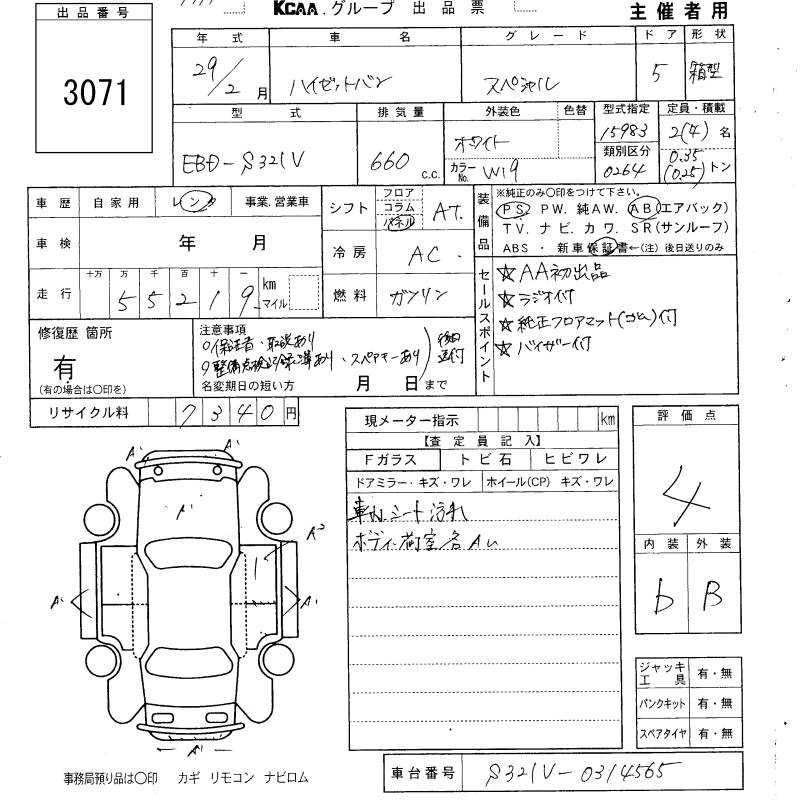 出品番号
3071
KCAA.グループ 出品票
主催者用
年式 車名 グレード ドア 形状
29/2月 ハイゼットバン スペシャル 5 箱型
型式 排気量 外装色 色替 型式指定 定員・積載
EBD-S321V 660 c.c. ホワイト 15983 2(4)名
カラーNo. W19 類別区分 0264 0.35 (0.25)トン
車歴 自家用 レンタ 事業.営業車
車検 年 月
走行 十万 万 千 百 十 一
5 5 2 1 9 km マイル
シフト フロア コラム パネル AT.
冷房 AC.
燃料 ガソリン
装備品
※純正のみ〇印をつけて下さい。
PS. PW. 純AW. AB(エアバック)
TV. ナビ. カワ. SR(サンルーフ)
ABS ・ 新車保証書←(注) 後日送りのみ
セールスポイント
☆AA初出品
☆ラジオ付
☆純正フロアマット(ゴム)付
☆バイザー付
修復歴 箇所
有
(有の場合は〇印を)
注意事項
保証書・取説あり
・スペアキーあり
後日送付
名変期日の短い方 月 日まで
リサイクル料 7340円
現メーター指示 km
【査定員記入】
Fガラス トビ石 ヒビワレ
ドアミラー・キズ・ワレ ホイール(CP) キズ・ワレ
車内.シート汚れ
ボディ.荷室各AU
評価点
4
内装 外装
b B
A' A'
A'
A3
A' A'
A'
ジャッキ工具 有・無
パンクキット 有・無
スペアタイヤ 有・無
車台番号 S321V-0314565
事務局預り品は〇印 カギ リモコン ナビロム